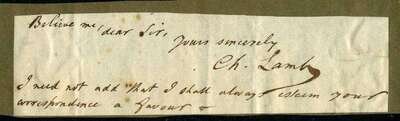 Believe me, dear Sir,
yours sincerely
Ch. Lamb
I need not add that I shall always esteem your
correspondence a favour